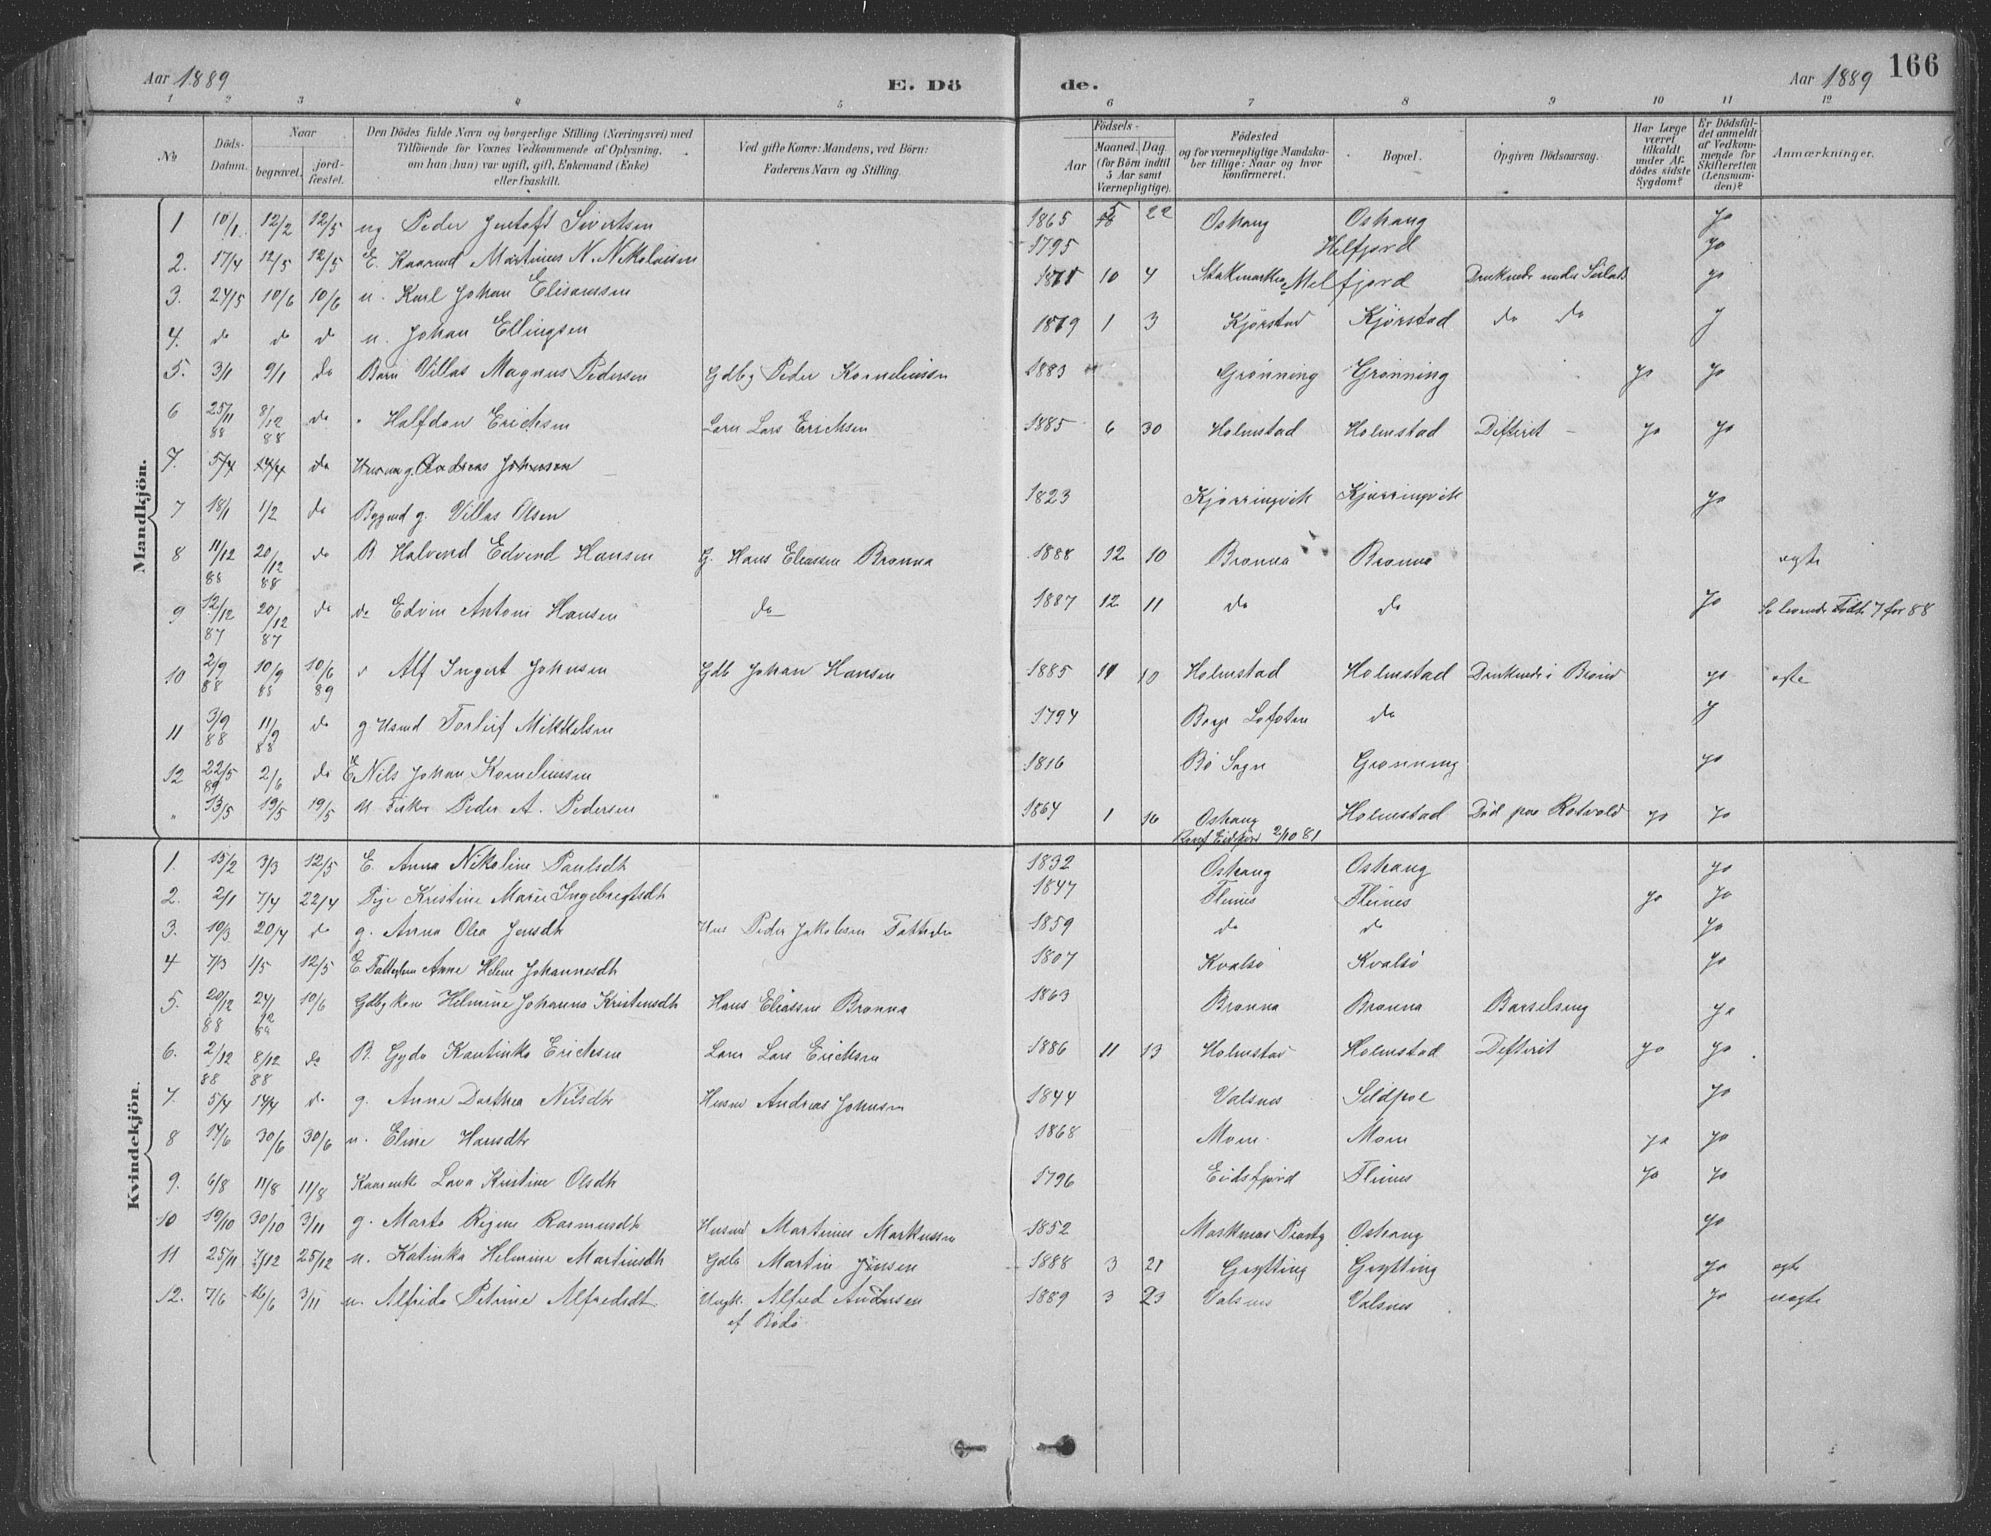 Aar 1889 E. Dö de. Aar 1889 166
1 2 3 4 5 6 7 8 9 10 11 12
No
Döds-Datum.
Naar
begravet.
jord-fæstet.
Den Dödes fulde Navn og borgerlige Stilling (Næringsvei) med
Tilföiende for Voxnes Vedkommende af Oplysning,
om han (hun) var ugift, gift, Enkemand (Enke)
eller fraskilt.
Ved gifte Koner: Mandens, ved Börn:
Faderens Navn og Stilling.
Födsels-
Aar
Maaned. Dag
(for Börn indtil
5 Aar samt
Værnepligtige).
Födested
og for værnepligtige Mandska-
ber tillige: Naar og hvor
konfirmeret.
Bopæl.
Opgiven Dödsaarsag.
Har Læge
været
tilkaldt
under Af-
dödes sidste
Sygdom?
Er Dödsfal-
det anmeldt
af Vedkom-
mende for
Skifteretten
(Lensman-
den)?
Anmærkninger.
Mandkjön.
1 10/1 12/2 12/5 ug Peder Jentoft Sivertsen 1865 5 22 Oshaug Oshaug Ja
2. 17/4 12/5 12/5 E. Kaarmd Martinus N. Nikolaisen 1795 Melfjord Ja
3. 24/5 10/6 10/6 u. Karl Johan Elisæussen 1871 10 4 Melfjord Druknede under Seilads Ja
4. do do do u. Johan Ellingsen 1879 1 3 Kjörstad Kjörstad do do J
5. 3/1 9/1 do Barn Villas Magnus Pedersen Gdbg Peder Korneliussen 1883 Grönning Grönning Ja Ja
6 25/11 88 8/12 88 do " Halfdan Erichsen Lærer Lars Erichsen 1885 6 30 Holmstad Holmstad Difterit Ja Ja
7. 5/4 14/4 do Andreas Johnsen
7 18/1 1/2 do Bygmd g. Villas Olsen 1823 Kjörringvik Kjörringvik Ja
8 11/12 88 20/12 88 do B Halvard Edvind Hansen G. Hans Eliassen Brönna 1888 12 10 Brönna Brönna ægte
9 12/12 87 20/12 87 do do Edvin Antoni Hansen do 1887 12 11 do do Ja
10 2/9 88 10/9 88 10/6 89 " Alf Ingert Johnsen Gdb Johan Hansen 1885 11 10 Holmstad Holmstad Druknede i Brönd Ja ægte
11 3/9 88 11/9 88 do g. Husmd Torleif Mikkelsen 1794 Borge Lofoten do J
12 22/5 89 2/6 do E Nils Johan Korneliussen 1816 Bö Sogn Grönning Ja
" 13/5 19/5 19/5 u. Fisker Peder A. Pedersen 1864 1 16 Oshaug Konf Eidsfjord 2/10 81 Holmstad Död paa Rotvold Ja Ja
Kvindekjön.
1. 15/2 3/3 12/5 E. Anna Nikoline Paulsdt 1832 Oshaug Oshaug Ja
2. 2/1 7/4 22/4 Pige Kristine Marie Ingebregtsdt 1847 Fleines Fleines Ja Ja
3. 10/3 20/4 do g. Anna Olea Jensdt Hus Peder Jakobsen 1859 do do Ja
4 7/3 1/5 12/5 E. Anne Helene Johannesdt 1807 Kvalsö Kvalsö Ja
5. 20/12 88 24/12 88 10/6 Gdbg kone Helmine Johanna Kristensdt Hans Eliassen Brönna 1863 Brönna Brönna Barselseng Ja
6. 2/12 88 8/12 88 do B. Gyda Kantinka Erichsen Lærer Lars Erichsen 1886 11 13 Holmstad Holmstad Difterit Ja Ja
7. 5/4 14/4 do g. Anne Dorthea Nilsdt Husmd Andreas Johnsen 1844 Valsnes Sildpol Ja
8 17/6 30/6 30/6 u. Eline Hansdt 1868 Moen Moen Ja Ja
9. 6/8 11/8 11/8 Kaarenke Lava Kristine Olsdt 1796 Eidsfjord Fleines Ja Ja
10 19/10 30/10 3/11 g. Marta Regine Rasmusdt Husmd Martinus Markussen 1852 Oshaug Ja
11 25/11 7/12 25/12 u. Katinka Helmine Martinsdt Gdb Martin Jensen 1888 3 21 Grytting Grytting Ja ægte
12. 7/6 16/6 3/11 u. Alfrida Petrine Alfredsdt Ungk. Alfred Andersen 1889 3 23 Valsnes Valsnes Ja uægte
af Bodö